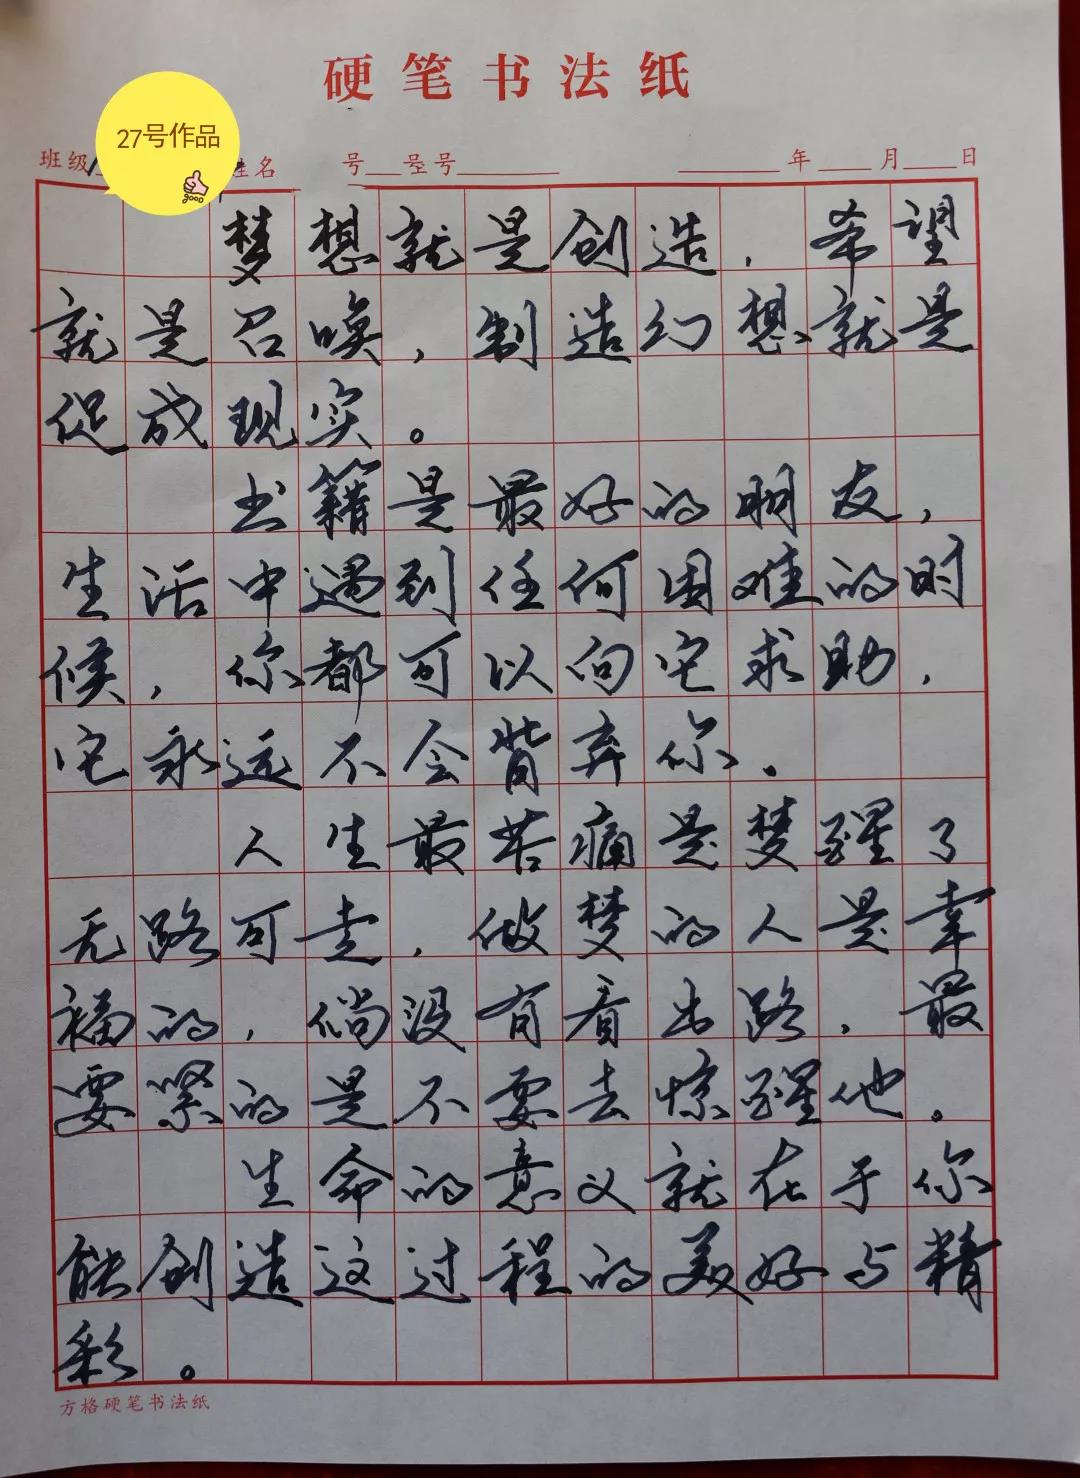 硬笔书法纸
27号作品
good
班级 姓名 号 号 年 月 日
梦想就是创造，希望
就是召唤，制造幻想就是
促成现实。
书籍是最好的朋友，
生活中遇到任何困难的时
候，你都可以向它求助，
它永远不会背弃你。
人生最苦痛是梦醒了
无路可走，做梦的人是幸
福的，倘没有看出路，最
要紧的是不要去惊醒他。
生命的意义就在于你
能创造这过程的美好与精
彩。
方格硬笔书法纸